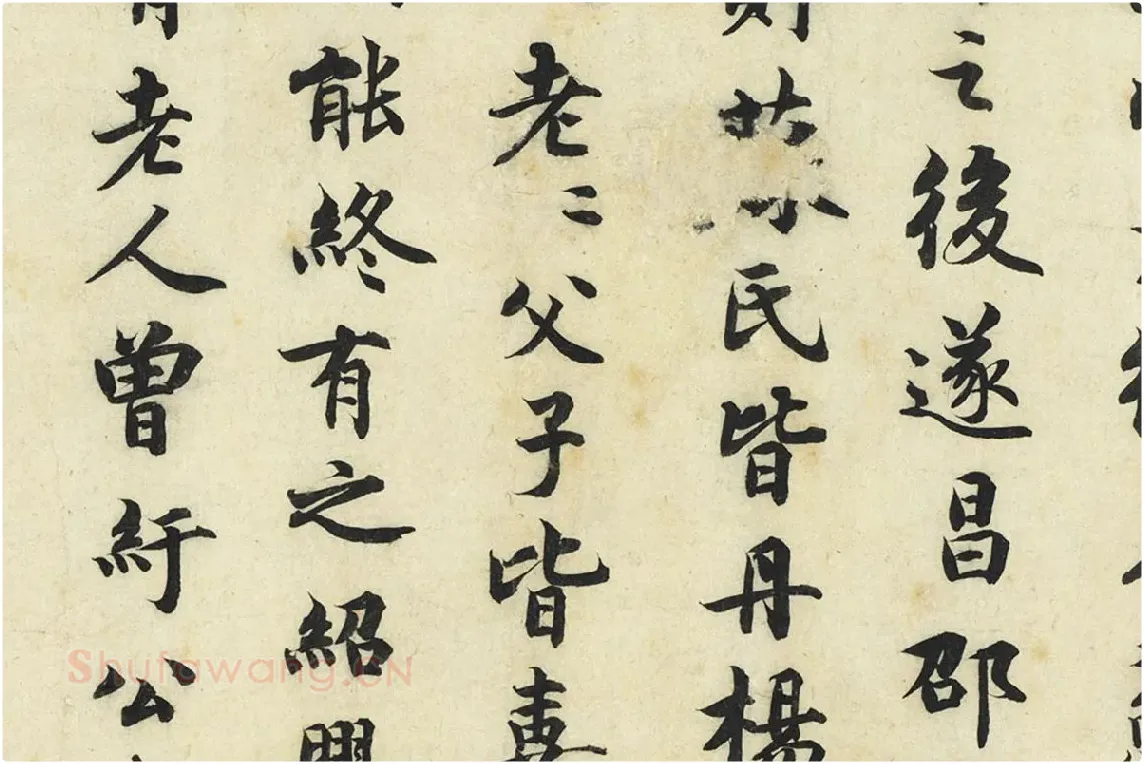 之後遂昌邵
蘇氏皆丹楊
老〻父子皆
能終有之紹興
老人曾紆公
Shufawang.CN